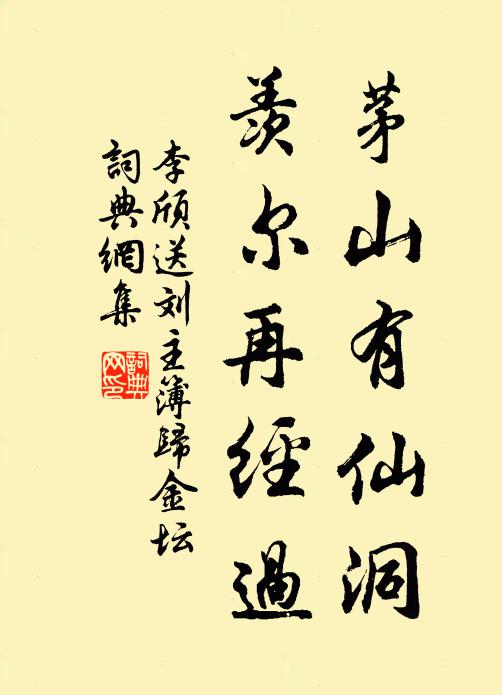 茅山有仙洞
羨尔再經過
李頎送刘主簿歸金坛
詞典網集
詞典网印